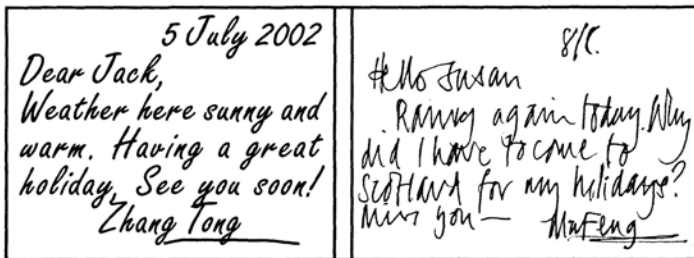 5 July 2002
Dear Jack,
Weather here sunny and
warm. Having a great
holiday. See you soon!
Zhang Tong
Hello Susan
Raining again today. Why
did I have to come to
Scotland for my holidays?
Miss you —
Ma Feng